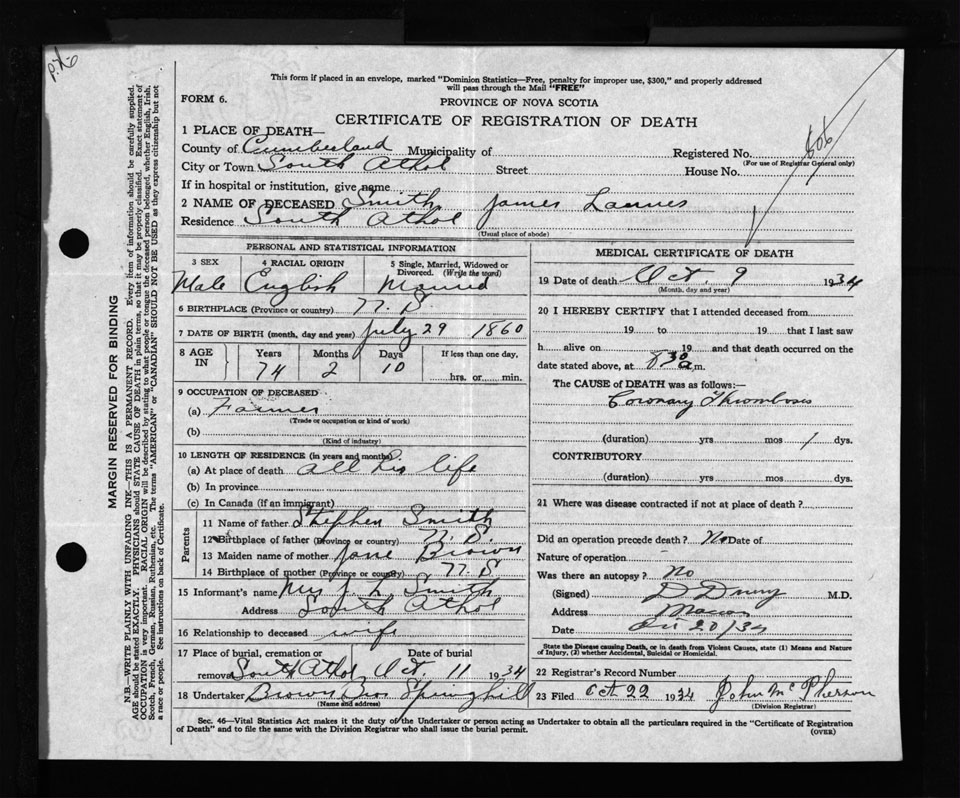 This form if placed in an envelope, marked "Dominion Statistics—Free, penalty for improper use, $300," and properly addressed
will pass through the Mail "FREE"
FORM 6.
PROVINCE OF NOVA SCOTIA
CERTIFICATE OF REGISTRATION OF DEATH
1 PLACE OF DEATH—
County of Cumberland Municipality of Registered No.
(For use of Registrar General only)
City or Town South Athol Street House No.
If in hospital or institution, give name
2 NAME OF DECEASED Smith James Lannes
Residence South Athol
(Usual place of abode)
PERSONAL AND STATISTICAL INFORMATION
3 SEX 4 RACIAL ORIGIN 5 Single, Married, Widowed or Divorced. (Write the word)
Male English Married
6 BIRTHPLACE (Province or country) N. S.
7 DATE OF BIRTH (month, day and year) July 29 1860
8 AGE IN Years Months Days If less than one day,
74 2 10 hrs. or min.
9 OCCUPATION OF DECEASED
(a) Farmer
(Trade or occupation or kind of work)
(b)
(Kind of industry)
10 LENGTH OF RESIDENCE (in years and months)
(a) At place of death all his life
(b) In province
(c) In Canada (if an immigrant)
Parents
11 Name of father Stephen Smith
12 Birthplace of father (Province or country) N. S.
13 Maiden name of mother Jane Brown
14 Birthplace of mother (Province or country) N. S
15 Informant's name Mrs J. L. Smith
Address South Athol
16 Relationship to deceased wife
17 Place of burial, cremation or removal Date of burial
South Athol Oct 11 1934
18 Undertaker Brown Bros Springhill
(Name and address)
MEDICAL CERTIFICATE OF DEATH
19 Date of death Oct. 9 1934
(Month, day and year)
20 I HEREBY CERTIFY that I attended deceased from
19 to 19 that I last saw
h alive on 19 and that death occurred on the
date stated above, at 8 30 a.m.
The CAUSE of DEATH was as follows:—
Coronary Thrombosis
(duration) yrs mos 1 dys.
CONTRIBUTORY
(duration) yrs mos dys.
21 Where was disease contracted if not at place of death?
Did an operation precede death? No Date of
Nature of operation
Was there an autopsy? No
(Signed) M.D.
Address Maccan
Date Oct 20/34
State the Disease causing Death, or in death from Violent Causes, state (1) Means and Nature of Injury, (2) whether Accidental, Suicidal or Homicidal.
22 Registrar's Record Number
23 Filed Oct 22 1934 John McPherson
(Division Registrar)
Sec. 46—Vital Statistics Act makes it the duty of the Undertaker or person acting as Undertaker to obtain all the particulars required in the "Certificate of Registration
of Death" and to file the same with the Division Registrar who shall issue the burial permit.
(OVER)
MARGIN RESERVED FOR BINDING
N.B.—WRITE PLAINLY WITH UNFADING INK—THIS IS A PERMANENT RECORD. Every item of information should be carefully supplied.
AGE should be stated EXACTLY. PHYSICIANS should STATE CAUSE OF DEATH in plain terms, so that it may be properly classified. Exact statement of
OCCUPATION is very important. RACIAL ORIGIN will be described by stating to what people or tongue the deceased person belonged, whether English, Irish,
Scotch, French, German, Russian, Ruthenian, etc. The terms "AMERICAN" or "CANADIAN" SHOULD NOT BE USED as they express citizenship but not
a race or people. See instructions on back of Certificate.